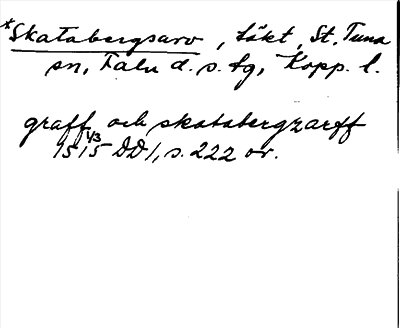 *Skatabergsarv, släkt, St. Tuna
sn, Falu d. s. fg, Kopp. l.
graff och skatabergzarff
1515 1/3 DD 1, s. 222 or.